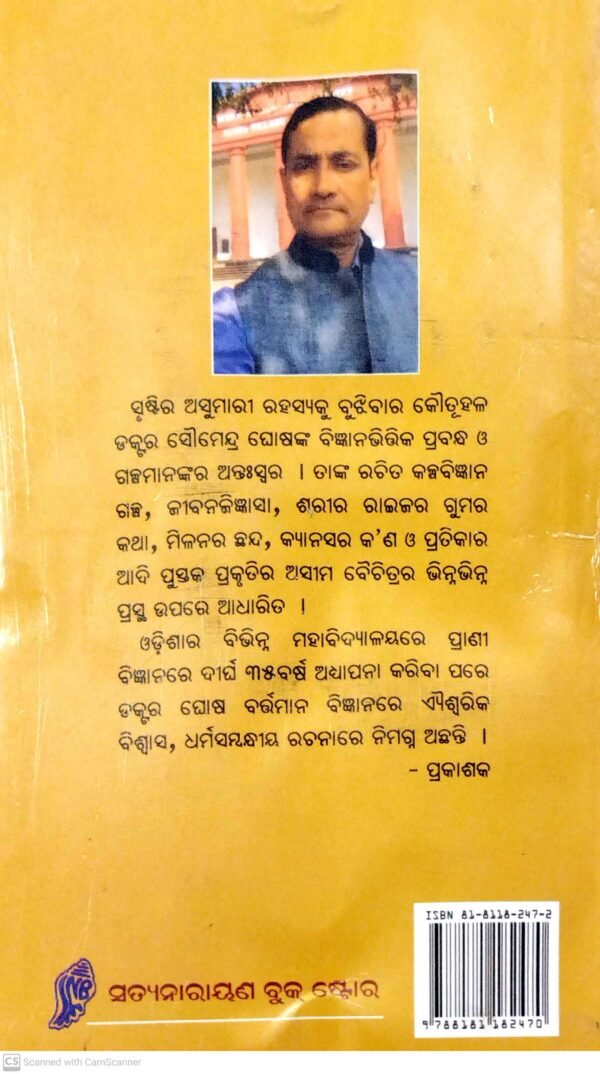 ସୃଷ୍ଟିର ଅସୁମାରୀ ରହସ୍ୟକୁ ବୁଝିବାର କୌତୂହଳ
ଡକ୍ଟର ସୌମେନ୍ଦ୍ର ଘୋଷଙ୍କ ବିଜ୍ଞାନଭିତ୍ତିକ ପ୍ରବନ୍ଧ ଓ
ଗଳ୍ପମାନଙ୍କର ଅନ୍ତଃସ୍ୱର । ତାଙ୍କ ରଚିତ କଳ୍ପବିଜ୍ଞାନ
ଗଳ୍ପ, ଜୀବନଜିଜ୍ଞାସା, ଶରୀର ରାଇଜର ଗୁମର
କଥା, ମିଳନର ଛନ୍ଦ, କ୍ୟାନସର କ'ଣ ଓ ପ୍ରତିକାର
ଆଦି ପୁସ୍ତକ ପ୍ରକୃତିର ଅସୀମ ବୈଚିତ୍ରର ଭିନ୍ନଭିନ୍ନ
ପ୍ରସ୍ଥ ଉପରେ ଆଧାରିତ ।
ଓଡ଼ିଶାର ବିଭିନ୍ନ ମହାବିଦ୍ୟାଳୟରେ ପ୍ରାଣୀ
ବିଜ୍ଞାନରେ ଦୀର୍ଘ ୩୫ବର୍ଷ ଅଧ୍ୟାପନା କରିବା ପରେ
ଡକ୍ଟର ଘୋଷ ବର୍ତ୍ତମାନ ବିଜ୍ଞାନରେ ଐଶ୍ୱରିକ
ବିଶ୍ୱାସ, ଧର୍ମସମ୍ବନ୍ଧୀୟ ରଚନାରେ ନିମଗ୍ନ ଅଛନ୍ତି ।
- ପ୍ରକାଶକ
ISBN 81-8118-247-2
ସତ୍ୟନାରାୟଣ ବୁକ୍ ଷ୍ଟୋର
9 788181 182470
CS Scanned with CamScanner